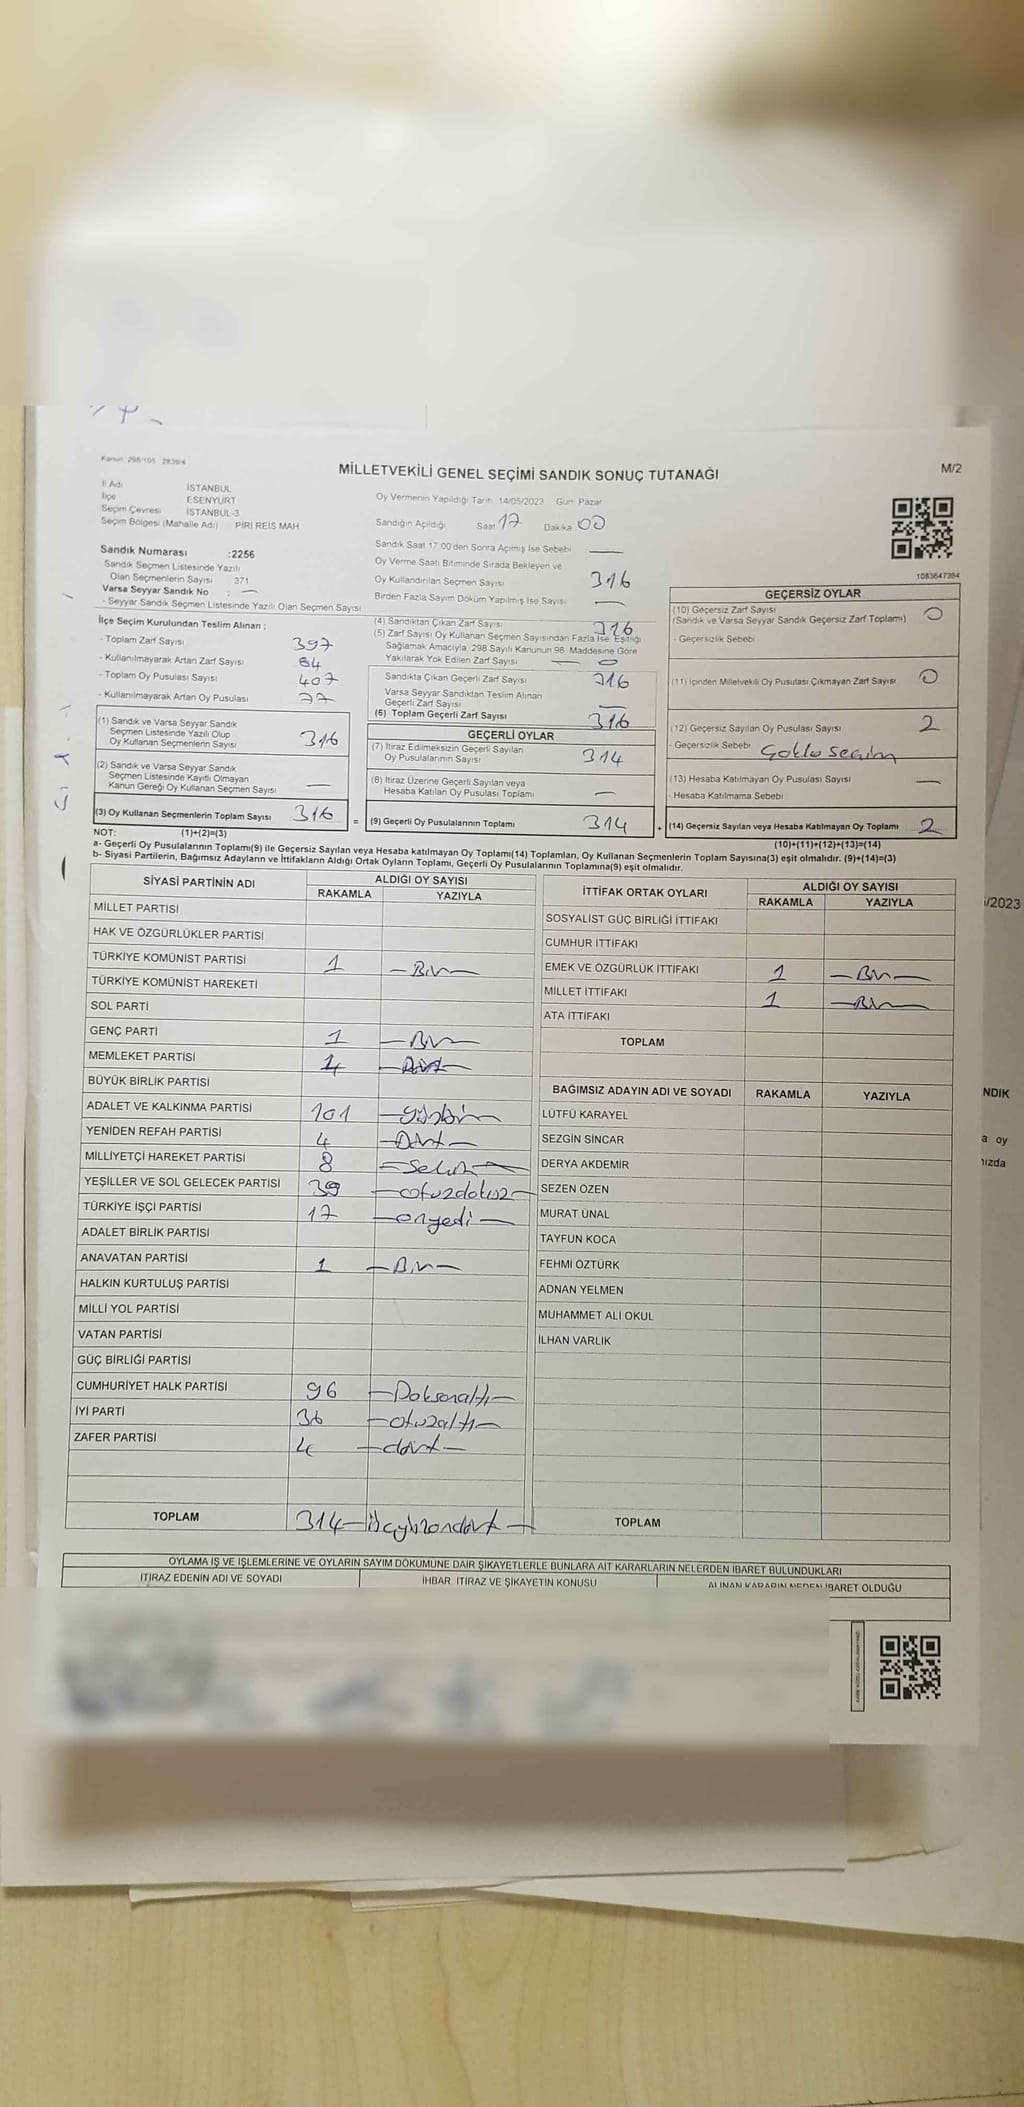 Kanun: 298/105 2839/4
MİLLETVEKİLİ GENEL SEÇİMİ SANDIK SONUÇ TUTANAĞI
M/2
İl Adı İSTANBUL
İlçe ESENYURT
Seçim Çevresi İSTANBUL-3
Seçim Bölgesi (Mahalle Adı) PİRİ REİS MAH
Sandık Numarası :2256
Sandık Seçmen Listesinde Yazılı
Olan Seçmenlerin Sayısı 371
Varsa Seyyar Sandık No : —
- Seyyar Sandık Seçmen Listesinde Yazılı Olan Seçmen Sayısı
Oy Vermenin Yapıldığı Tarih: 14/05/2023 Gün: Pazar
Sandığın Açıldığı Saat 17 Dakika 00
Sandık Saat 17:00'den Sonra Açımış İse Sebebi —
Oy Verme Saati Bitiminde Sırada Bekleyen ve
Oy Kullandırılan Seçmen Sayısı 316
Birden Fazla Sayım Döküm Yapılmış İse Sayısı —
1083647384
İlçe Seçim Kurulundan Teslim Alınan ;
- Toplam Zarf Sayısı 397
- Kullanılmayarak Artan Zarf Sayısı 84
- Toplam Oy Pusulası Sayısı 407
- Kullanılmayarak Artan Oy Pusulası 77
(1) Sandık ve Varsa Seyyar Sandık
Seçmen Listesinde Yazılı Olup
Oy Kullanan Seçmenlerin Sayısı 316
(2) Sandık ve Varsa Seyyar Sandık
Seçmen Listesinde Kayıtlı Olmayan
Kanun Gereği Oy Kullanan Seçmen Sayısı —
(3) Oy Kullanan Seçmenlerin Toplam Sayısı 316
(4) Sandıktan Çıkan Zarf Sayısı 316
(5) Zarf Sayısı Oy Kullanan Seçmen Sayısından Fazla İse, Eşitliği
Sağlamak Amacıyla, 298 Sayılı Kanunun 98. Maddesine Göre
Yakılarak Yok Edilen Zarf Sayısı — 0
Sandıkta Çıkan Geçerli Zarf Sayısı 316
Varsa Seyyar Sandıktan Teslim Alınan
Geçerli Zarf Sayısı —
(6) Toplam Geçerli Zarf Sayısı 316
GEÇERLİ OYLAR
(7) İtiraz Edilmeksizin Geçerli Sayılan
Oy Pusulalarının Sayısı 314
(8) İtiraz Üzerine Geçerli Sayılan veya
Hesaba Katılan Oy Pusulası Toplamı —
= (9) Geçerli Oy Pusulalarının Toplamı 314
GEÇERSİZ OYLAR
(10) Geçersiz Zarf Sayısı 0
(Sandık ve Varsa Seyyar Sandık Geçersiz Zarf Toplamı)
- Geçersizlik Sebebi
(11) İçinden Milletvekili Oy Pusulası Çıkmayan Zarf Sayısı 0
(12) Geçersiz Sayılan Oy Pusulası Sayısı 2
- Geçersizlik Sebebi Çoklu seçim
(13) Hesaba Katılmayan Oy Pusulası Sayısı —
- Hesaba Katılmama Sebebi
+ (14) Geçersiz Sayılan veya Hesaba Katılmayan Oy Toplamı 2
NOT: (1)+(2)=(3)
(10)+(11)+(12)+(13)=(14)
a- Geçerli Oy Pusulalarının Toplamı(9) ile Geçersiz Sayılan veya Hesaba katılmayan Oy Toplamı(14) Toplamları, Oy Kullanan Seçmenlerin Toplam Sayısına(3) eşit olmalıdır. (9)+(14)=(3)
b- Siyasi Partilerin, Bağımsız Adayların ve İttifakların Aldığı Ortak Oyların Toplamı, Geçerli Oy Pusulalarının Toplamına(9) eşit olmalıdır.
SİYASİ PARTİNİN ADI ALDIĞI OY SAYISI
RAKAMLA YAZIYLA
MİLLET PARTİSİ
HAK VE ÖZGÜRLÜKLER PARTİSİ
TÜRKİYE KOMÜNİST PARTİSİ 1 — Bir —
TÜRKİYE KOMÜNİST HAREKETİ
SOL PARTİ
GENÇ PARTİ 1 — Bir —
MEMLEKET PARTİSİ 4 — Dört —
BÜYÜK BİRLİK PARTİSİ
ADALET VE KALKINMA PARTİSİ 101 — yüzbir
YENİDEN REFAH PARTİSİ 4 — Dört —
MİLLİYETÇİ HAREKET PARTİSİ 8 — Sekiz —
YEŞİLLER VE SOL GELECEK PARTİSİ 39 — otuzdokuz —
TÜRKİYE İŞÇİ PARTİSİ 17 — onyedi —
ADALET BİRLİK PARTİSİ
ANAVATAN PARTİSİ 1 — Bir —
HALKIN KURTULUŞ PARTİSİ
MİLLİ YOL PARTİSİ
VATAN PARTİSİ
GÜÇ BİRLİĞİ PARTİSİ
CUMHURİYET HALK PARTİSİ 96 — Doksanaltı —
İYİ PARTİ 36 — otuzaltı —
ZAFER PARTİSİ 4 — dört —
TOPLAM 314 — üçyüzondört —
İTTİFAK ORTAK OYLARI ALDIĞI OY SAYISI
RAKAMLA YAZIYLA
SOSYALİST GÜÇ BİRLİĞİ İTTİFAKI
CUMHUR İTTİFAKI
EMEK VE ÖZGÜRLÜK İTTİFAKI 1 — Bir —
MİLLET İTTİFAKI 1 — Bir —
ATA İTTİFAKI
TOPLAM
BAĞIMSIZ ADAYIN ADI VE SOYADI RAKAMLA YAZIYLA
LÜTFÜ KARAYEL
SEZGİN SİNCAR
DERYA AKDEMİR
SEZEN ÖZEN
MURAT ÜNAL
TAYFUN KOCA
FEHMİ ÖZTÜRK
ADNAN YELMEN
MUHAMMET ALİ OKUL
İLHAN VARLIK
TOPLAM
OYLAMA İŞ VE İŞLEMLERİNE VE OYLARIN SAYIM DÖKÜMÜNE DAİR ŞİKAYETLERLE BUNLARA AİT KARARLARIN NELERDEN İBARET BULUNDUKLARI
İTİRAZ EDENİN ADI VE SOYADI İHBAR İTİRAZ VE ŞİKAYETİN KONUSU ALINAN KARARIN NEDEN İBARET OLDUĞU
/2023
NDIK
a oy
nızda